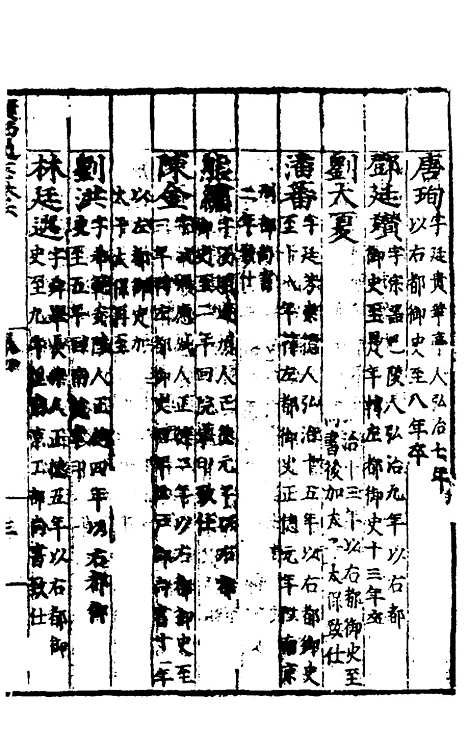 唐珣字廷貴華亭人弘治七年
以右都御史至八年卒
鄧廷瓚字宗器巴陵人弘治九年以右都
御史至是年轉左都御史十三年卒
劉大夏
弘治十三年以右都御史至
尚書後加太子太保致仕
潘蕃字廷芳崇德人弘治十五年以右都御史
至十八年轉左都御史正德元年改南京
刑部尚書
二年致仕
熊繡字汝明道州人正德元年以右都
御史至二年回院掌印致仕
陳金字汝礪應城人正德二年以右都御史至
三年轉左都御史四年戶部尚書十一年
以左都御史加
太子太保再至
劉洪字希範安陸人正德四年以右都御
史至五年回南京
林廷選字舜舉長樂人正德五年以右都御
史至九年陞南京工部尚書致仕
三